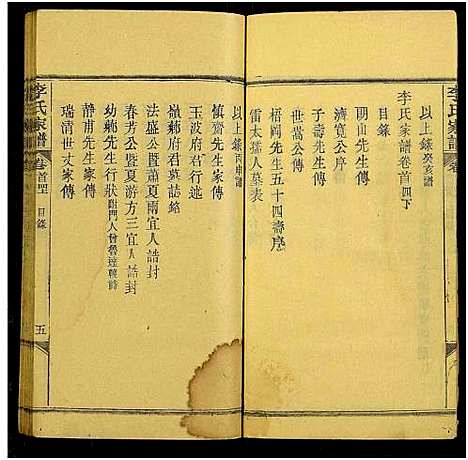 李氏家譜
卷
以上錄癸亥譜
李氏家譜卷首四下
目錄
明山先生家傳
濟寬公序
子壽先生家傳
世嵩公傳
梧岡先生五十四壽序
雷太孺人墓表
以上錄丙申譜
慎齋先生家傳
玉波府君行述
嶺蘄府君墓誌銘
法盛公暨蕭夏兩宜人誥封
春芳公暨夏游方三宜人誥封
幼蘄先生行狀 附門人曾魯瑳輓詩
靜甫先生家傳
瑞清世丈家傳
李氏家譜
卷首四
目錄
五